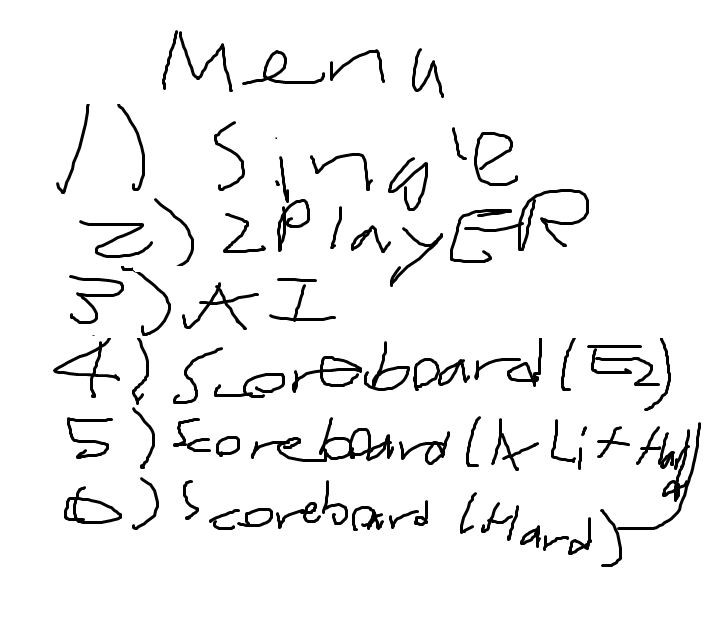 Menu
1) Single
2) 2PlayER
3) AI
4) Scoreboard (Ez)
5) Scoreboard (A Lit Hard)
6) Scoreboard (Hard)